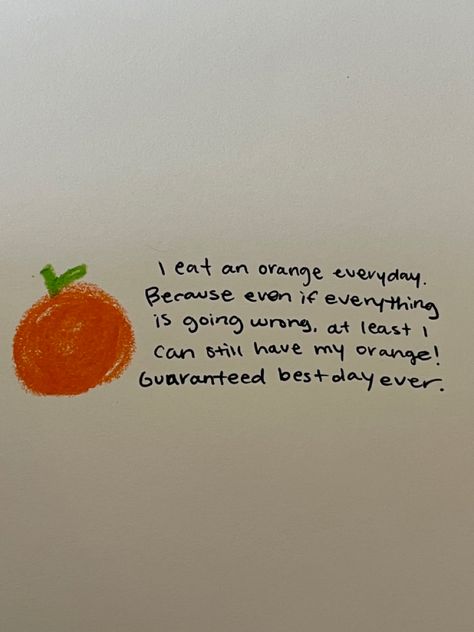 I eat an orange everyday.
Because even if everything
is going wrong, at least I
can still have my orange!
Guaranteed best day ever.